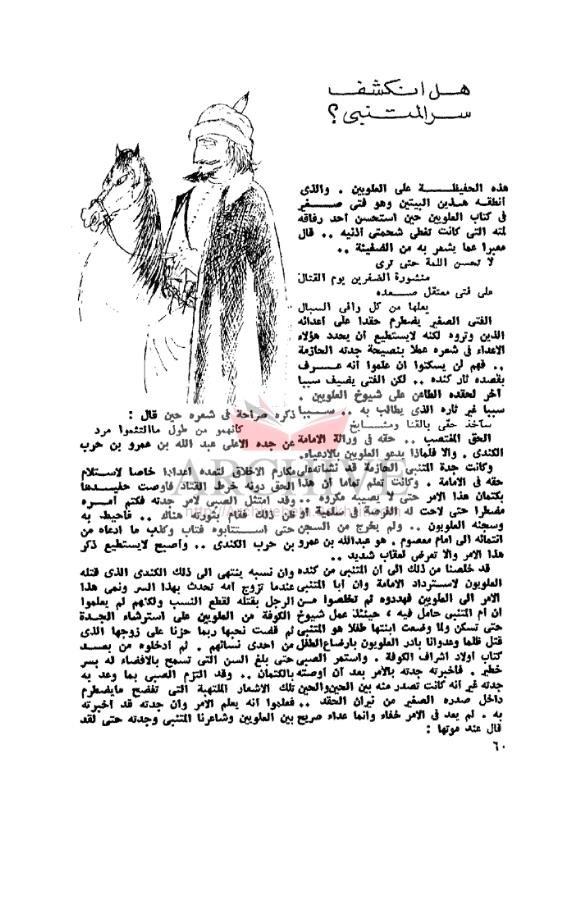 هل انكشف
سر المتنبي ؟
هذه الحفيظة على العلويين . والذى
أنطقه هذين البيتين وهو فتى صغير
فى كتاب العلويين حين استحسن احد رفاقه
لمته التى كانت تغطى شحمتى أذنيه .. قال
معبرا عما يشعر به من الضغينة ..
لا تحسن اللمة حتى ترى
منشورة الضفرين يوم القتال
على فتى معتقل صعده
يعلها من كل وافى السبال
الفتى الصغير يضطرم حقدا على أعدائه
الذين وتروه لكنه لايستطيع أن يحدد هؤلاء
الاعداء فى شعره عملا بنصيحة جدته الحازمة
.. فهم لن يسكتوا ان علموا أنه عرف
بقصده ثار كنده .. لكن الفتى يضيف سببا
آخر لحقده الطاغى على شيوخ العلويين .
سببا غير ثاره الذى يطالب به .. سببا
سآخذ حقى بالقنا ومشايخ
الحق المغتصب .. حقه فى وراثة الامامة
الكندى . والا فلماذا يدعو العلويين بالادعياء.
وكانت جدة المتنبى الحازمة قد نشأته على
حقه فى الامامة . وكانت تعلم تماما أن هذا
بكتمان هذا الامر حتى لا يصيبه مكروه ..
مضطرا حتى لاحت له الفرصة فى سلمية او
وسجنه العلويون .. ولم يخرج من السجن
انتمائه الى امام معصوم . هو عبدالله بن عمرو
هذا الامر والا تعرض لعقاب شديد ..
قد خلصنا من ذلك الى ان المتنبى من كنده
العلويون لاسترداد الامامة وان أبا المتنبى
الامر الى العلويين فهددوه ثم تخلصوا من
ان ام المتنبى حامل فيه ، حينئذ عمل شيوخ
حتى تسكن ولما وضعت ابنتها طفلا هو المتنبى
قتل ظلما وعدوانا بادر العلويون بارضاع الطفل
كتاب أولاد اشراف الكوفة . واستمر الصبى
خطير . فأخبرته جدته بالأمر بعد أن أوصته
جدته غير أنه كانت تصدر منه بين الحين والحين
داخل صدره الصغير من نيران الحقد ..
به . لم يعد فى الامر خفاء وانما عداء صريح
قال عند موتها :
ذكره صراحة فى شعره حين قال :
كأنهمو من طول ماالتثموا مرد
عن جده الاعلى عبد الله بن عمرو بن حرب
مكارم الاخلاق لتعده اعدادا خاصا لاستلام
الحق دونه خرط القتاد فاوصت حفيدها
وقد امتثل الصبى لامر جدته فكتم أمره
ظن ذلك فقام بثورته هناك .. فأحيط به
حتى استتابوه فتاب وكذب ما ادعاه من
بن حرب الكندى .. وأصبح لايستطيع ذكر
وان نسبه ينتهى الى ذلك الكندى الذى قتله
عندما تزوج أمه تحدث بهذا السر ونمى هذا
الرجل بقتله لقطع النسب ولكنهم لم يعلموا
الكوفة من العلويين على استرضاء الجدة
ثم قضت نحبها ربما حزنا على زوجها الذى
من احدى نسائهم . ثم ادخلوه من بعد
حتى بلغ السن التى تسمح بالافضاء له بسر
بالكتمان .. وقد التزم الصبى بما وعد به
تلك الاشعار الملتهبة التى تفضح مايضطرم
فعلموا أنه يعلم الامر وان جدته قد أخبرته
بين العلويين وشاعرنا المتنبى وجدته حتى لقد
٦٠
ARCHIVE